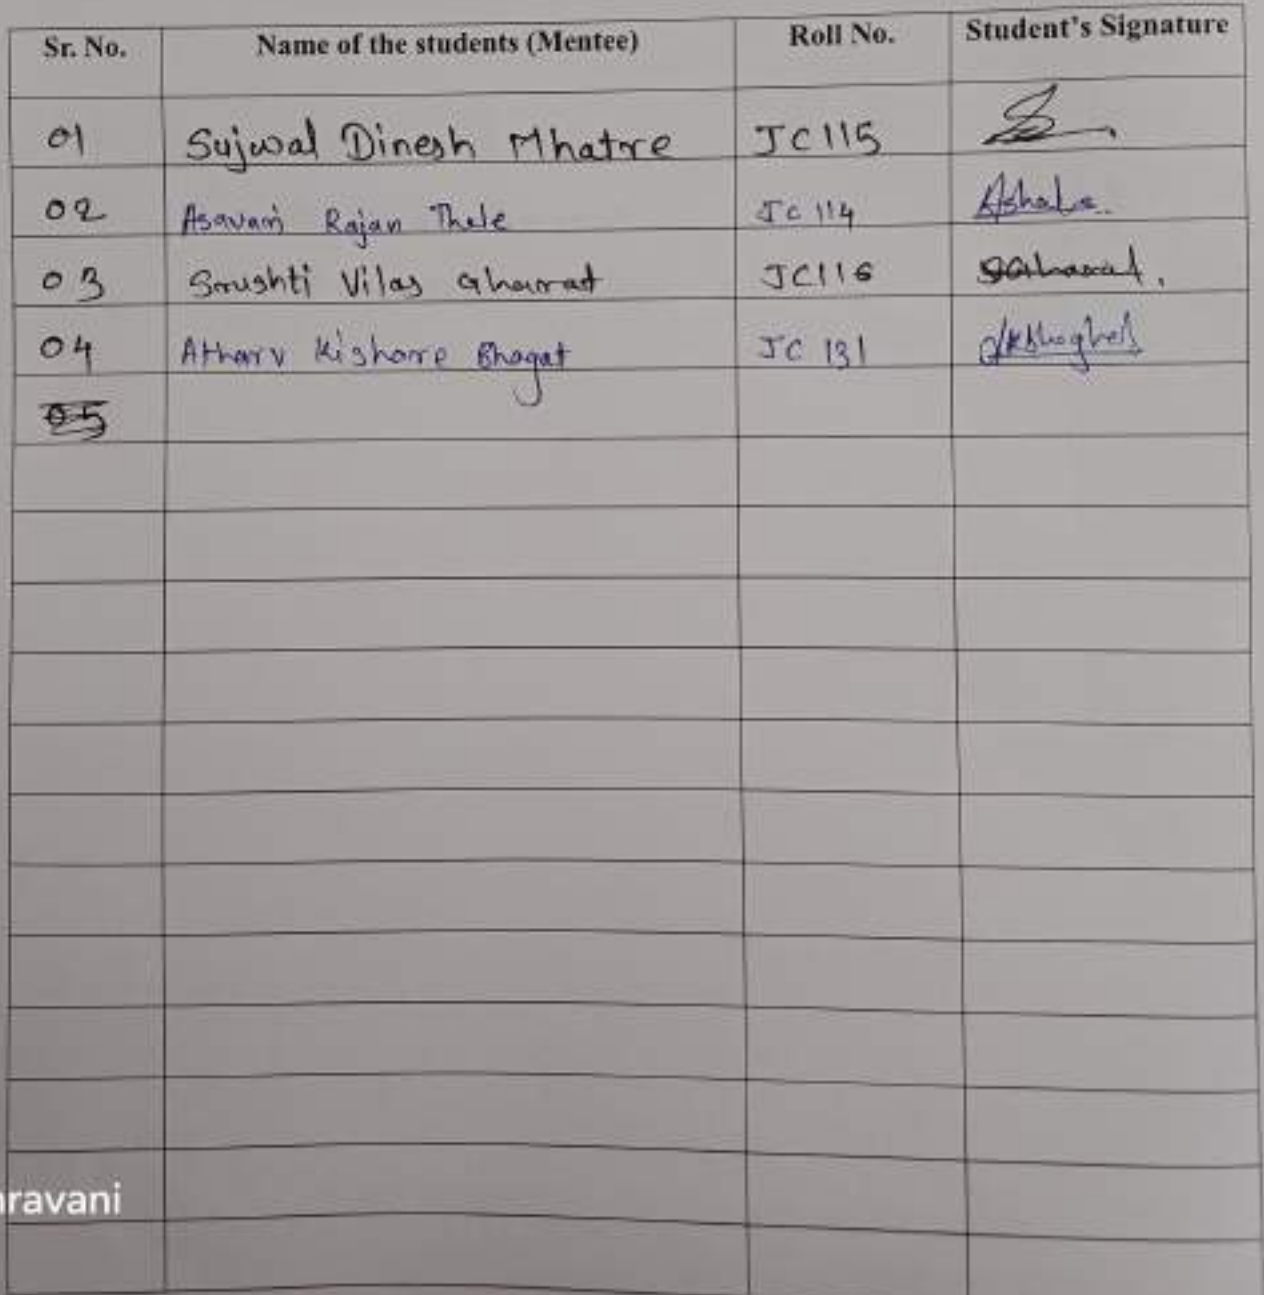 Sr. No. Name of the students (Mentee) Roll No. Student's Signature
01 Sujwal Dinesh Mhatre JC115
02 Rajan Thele JC 114
03 Srushti Vilas Gharat JC116
04 Atharv Kishore Bhagat JC 131
05
ravani